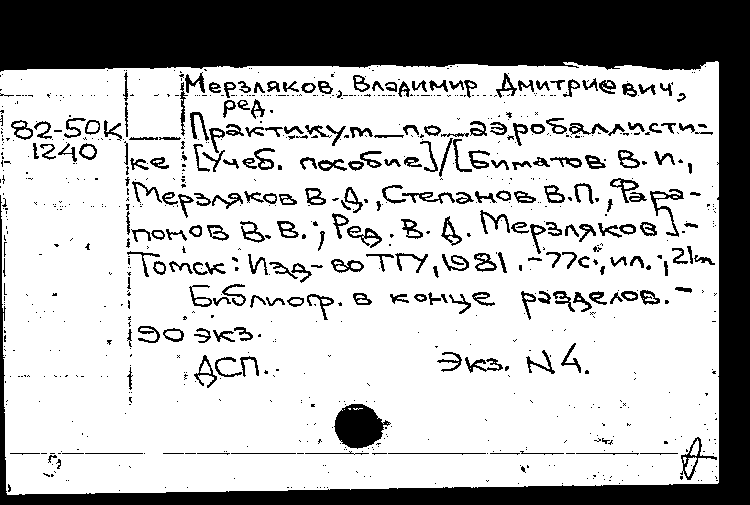 Мерзляков, Владимир Дмитриевич,
ред.
82-50К Практикум по аэробаллисти-
1240 ке [Учеб. пособие]/[Биматов В.И.,
Мерзляков В.Д., Степанов В.П., Фара-
понов В.В.; Ред. В.Д. Мерзляков].-
Томск: Изд-во ТГУ, 1981.-77с., ил.; 21см
Библиогр. в конце разделов.-
90 экз.
ДСП. Экз. N4.